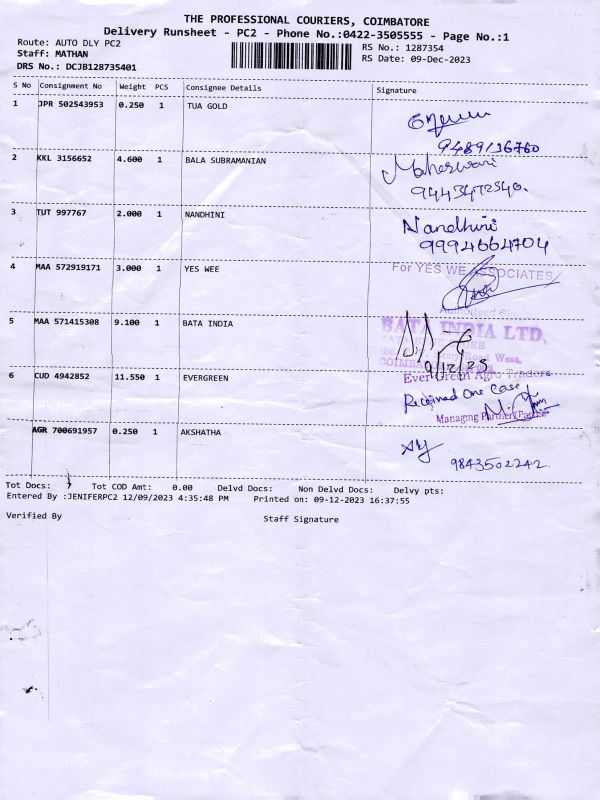 THE PROFESSIONAL COURIERS, COIMBATORE
Delivery Runsheet - PC2 - Phone No.:0422-3505555 - Page No.:1
Route: AUTO DLY PC2
Staff: MATHAN
DRS No.: DCJB128735401
RS No.: 1287354
RS Date: 09-Dec-2023
S No Consignment No Weight PCS Consignee Details Signature
1 JPR 502543953 0.250 1 TUA GOLD
9489136760
2 KKL 3156652 4.600 1 BALA SUBRAMANIAN
Maheswari
9443472540.
3 TUT 997767 2.000 1 NANDHINI
Nandhini
9994664704
4 MAA 572919171 3.000 1 YES WEE
For YES WE ASSOCIATES
5 MAA 571415308 9.100 1 BATA INDIA
BATA INDIA LTD,
West,
9/12/23
6 CUD 4942852 11.550 1 EVERGREEN
Ever Green Agro Traders
Received One Case
Managing Partner/Partner
AGR 700691957 0.250 1 AKSHATHA
9843502242.
Tot Docs: 7 Tot COD Amt: 0.00 Delvd Docs: Non Delvd Docs: Delvy pts:
Entered By :JENIFERPC2 12/09/2023 4:35:48 PM Printed on: 09-12-2023 16:37:55
Verified By Staff Signature